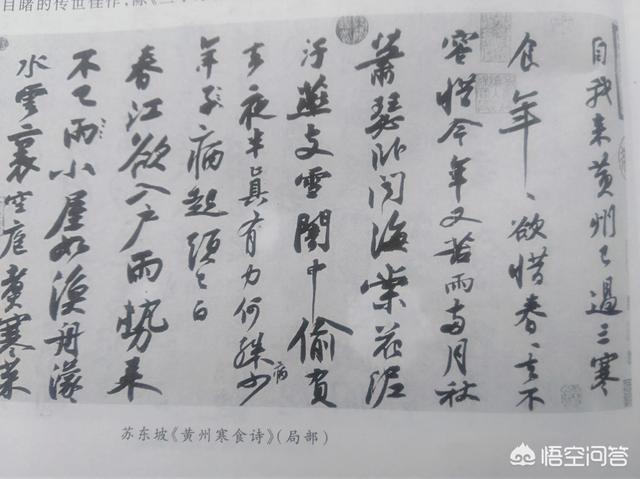 目睹的传世佳作,除《二
自我来黄州已過三寒
食年〻欲惜春〻去不
容惜今年又苦雨兩月秋
蕭瑟卧聞海棠花泥
汙燕支雪闇中偷負
去夜半真有力何殊少
病
年子病起須已白
春江欲入戶雨勢来
不已雨小屋如漁舟濛〻
水雲裏空庖煮寒菜
苏东坡《黄州寒食诗》(局部)
悟空问答